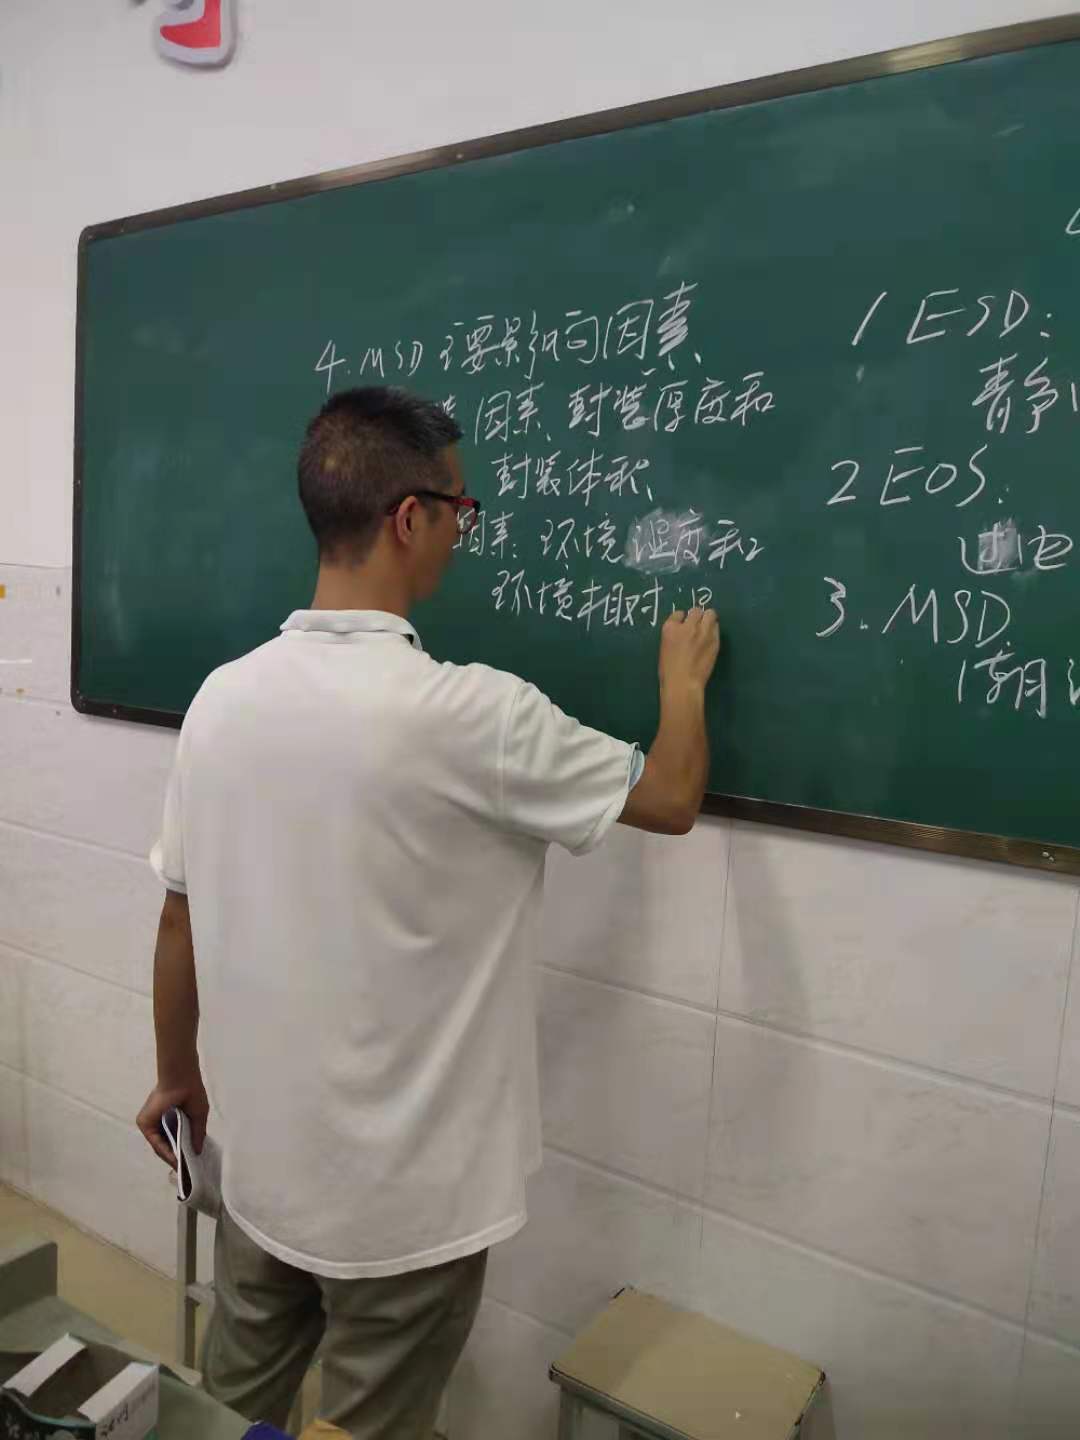 4. MSD 主要影响因素
因素、封装厚度和
封装体积、
因素: 环境湿度和
环境相对湿
1 ESD:
静
2 EOS:
过电
3. MSD
潮